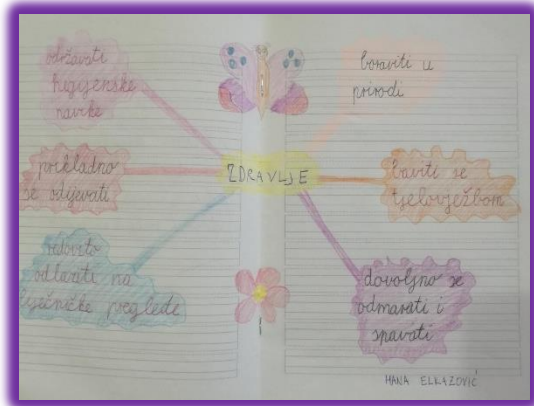 održavati
higijenske
navike
prikladno
se odijevati
redovito
odlaziti na
liječničke preglede
ZDRAVLJE
boraviti u
prirodi
baviti se
tjelovježbom
dovoljno se
odmarati i
spavati
HANA ELKAZOVIĆ